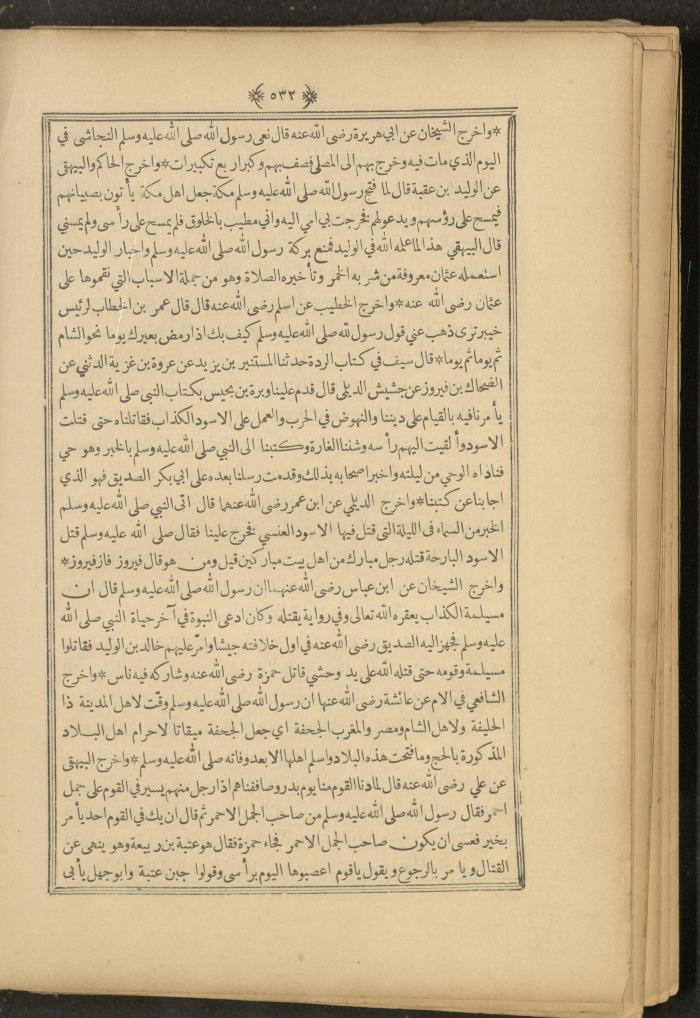 ٥٣٢
*واخرج الشيخان عن ابي هريرة رضى الله عنه قال نعى رسول الله صلى الله عليه وسلم النجاشى في
اليوم الذي مات فيه وخرج بهم الى المصلى فصف بهم وكبر اربع تكبيرات*واخرج الحاكم والبيهقى
عن الوليد بن عقبة قال لما فتح رسول الله صلى الله عليه وسلم مكة جعل اهل مكة يأتون بصبيانهم
فيمسح على رؤسهم ويدعو لهم فخرجت بي امي اليه واني مطيب بالخلوق فلم يمسح على رأسى ولم يمسني
قال البيهقي هذا لما علمه الله في الوليد فمنع بركة رسول الله صلى الله عليه وسلم واخبار الوليد حين
استعمله عثمان معروفة من شربه الخمر وتأخيره الصلاة وهو من جملة الاسباب التي نقموها على
عثمان رضى الله عنه*واخرج الخطيب عن اسلم رضى الله عنه قال قال عمر بن الخطاب لرئيس
خيبر ترى ذهب عني قول رسول لله صلى الله عليه وسلم كيف بك اذا رمض بعيرك يوما نحو الشام
ثم يوما ثم يوما*قال سيف في كتاب الردة حدثنا المستنير بن يزيد عن عروة بن غزية الدثني عن
الضحاك بن فيروز عن جشيش الديلى قال قدم علينا وبرة بن يحيس بكتاب النبي صلى الله عليه وسلم
يأمرنا فيه بالقيام على ديننا والنهوض في الحرب والعمل على الاسود الكذاب فقاتلناه حتى قتلت
الاسود وألقيت اليهم رأسه وشننا الغارة وكتبنا الى النبي صلى الله عليه وسلم بالخبر وهو حي
فناداه الوحي من ليلته واخبر اصحابه بذلك وقدمت رسلنا بعده على ابي بكر الصديق فهو الذي
اجابنا عن كتبنا*واخرج الديلمي عن ابن عمر رضى الله عنهما قال اتى النبي صلى الله عليه وسلم
الخبر من السماء فى الليلة التى قتل فيها الاسود العنسي فخرج علينا فقال صلى الله عليه وسلم قتل
الاسود البارحة قتله رجل مبارك من اهل بيت مباركين قيل ومن هو قال فيروز فاز فيروز*
واخرج الشيخان عن ابن عباس رضى الله عنهما ان رسول الله صلى الله عليه وسلم قال ان
مسيلمة الكذاب يعقره الله تعالى وفي رواية يقتله وكان ادعى النبوة في آخر حياة النبي صلى الله
عليه وسلم فجهز اليه الصديق رضى الله عنه في اول خلافته جيشا وامر عليهم خالد بن الوليد فقاتلوا
مسيلمة وقومه حتى قتله الله على يد وحشي قاتل حمزة رضى الله عنه وشاركه فيه ناس*واخرج
الشافعي في الام عن عائشة رضى الله عنها ان رسول الله صلى الله عليه وسلم وقت لاهل المدينة ذا
الحليفة ولاهل الشام ومصر والمغرب الجحفة اي جعل الجحفة ميقاتا لاحرام اهل البلاد
المذكورة بالحج وما فتحت هذه البلاد واسلم اهلها الا بعد وفاته صلى الله عليه وسلم*واخرج البيهقى
عن علي رضى الله عنه قال لما دنا القوم منا يوم بدر وصاففناهم اذا رجل منهم يسير في القوم على جمل
احمر فقال رسول الله صلى الله عليه وسلم من صاحب الجمل الاحمر ثم قال ان يك في القوم احد يأمر
بخير فعسى ان يكون صاحب الجمل الاحمر فجاء حمزة فقال هو عتبة بن ربيعة وهو ينهى عن
القتال ويامر بالرجوع ويقول ياقوم اعصبوها اليوم برأسى وقولوا جبن عتبة وابو جهل يأبى